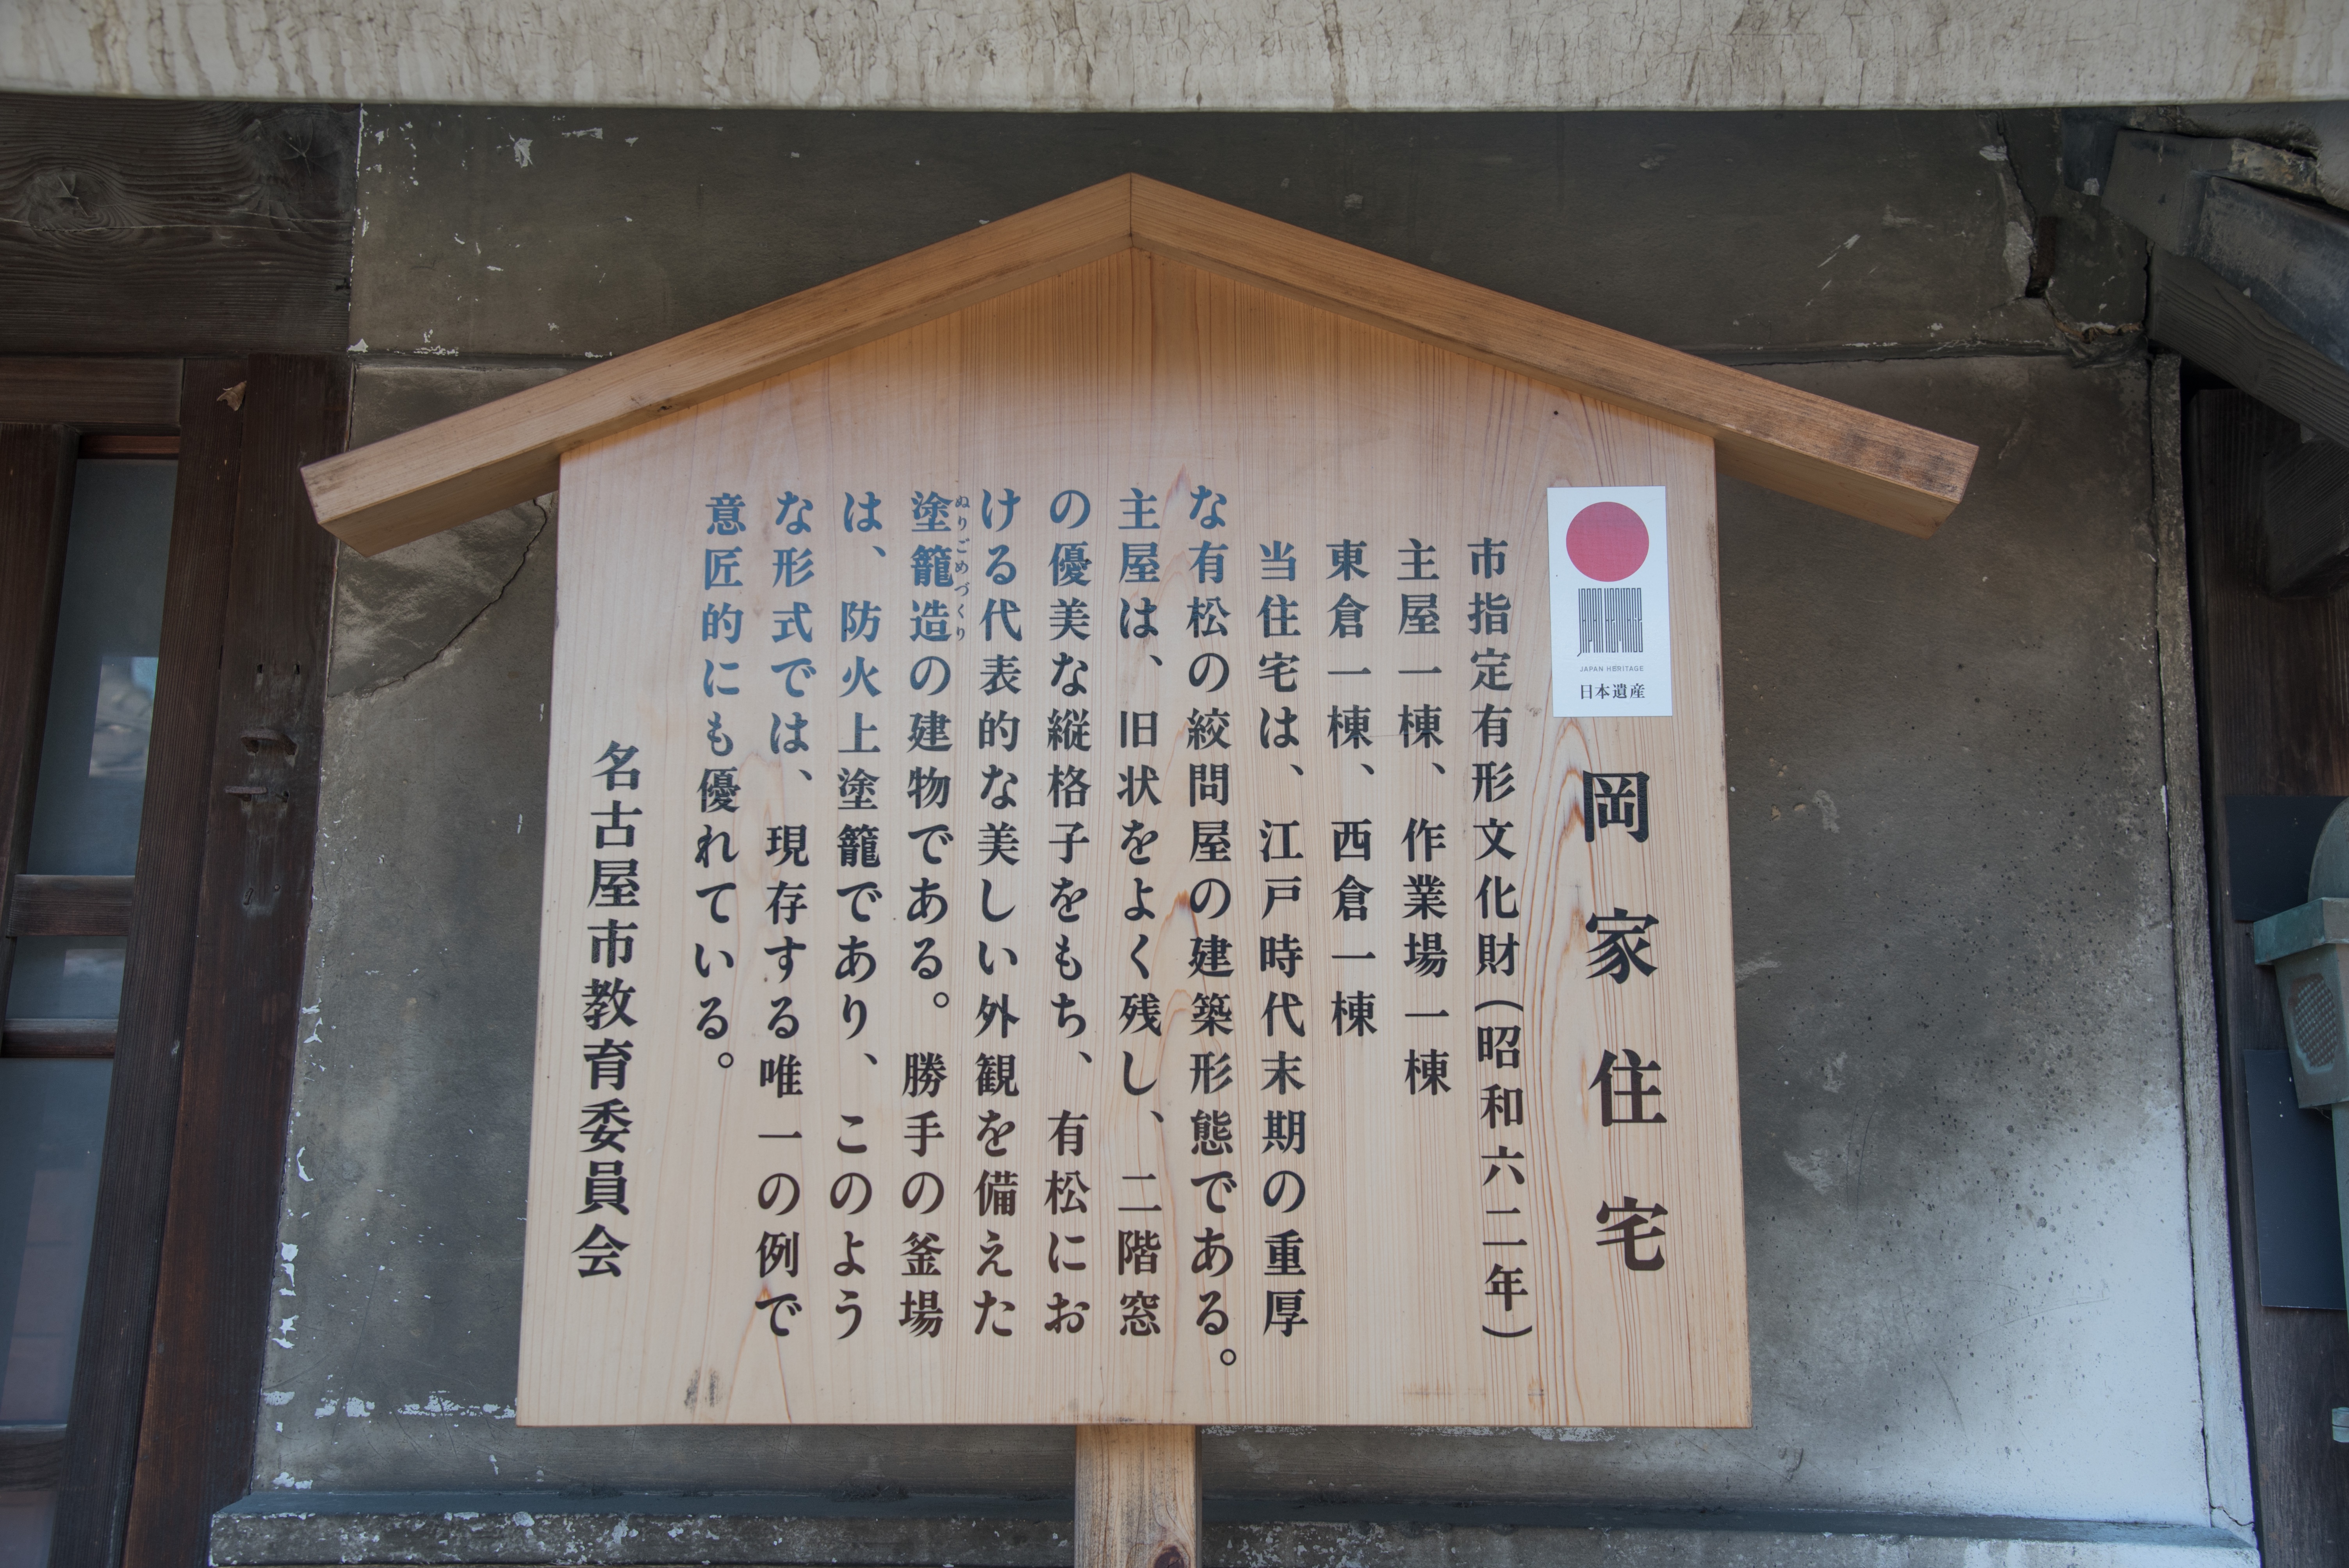 岡家住宅
JAPAN HERITAGE
JAPAN HERITAGE
日本遺産
市指定有形文化財（昭和六二年）
主屋一棟、作業場一棟
東倉一棟、西倉一棟
当住宅は、江戸時代末期の重厚
な有松の絞問屋の建築形態である。
主屋は、旧状をよく残し、二階窓
の優美な縦格子をもち、有松にお
ける代表的な美しい外観を備えた
ぬりごめづくり
塗籠造の建物である。勝手の釜場
は、防火上塗籠であり、このよう
な形式では、現存する唯一の例で
意匠的にも優れている。
名古屋市教育委員会